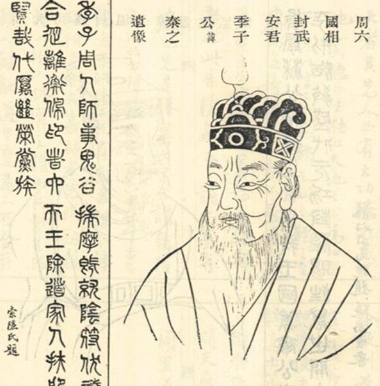 周六
國相
封武
安君
季子
公諱
秦之
遺像
季子周人師事鬼谷揣摩既就陰符伏讀
合從離衡佩印者六天王除道家人扶服
賢哉代厲繼榮黨族
氏題